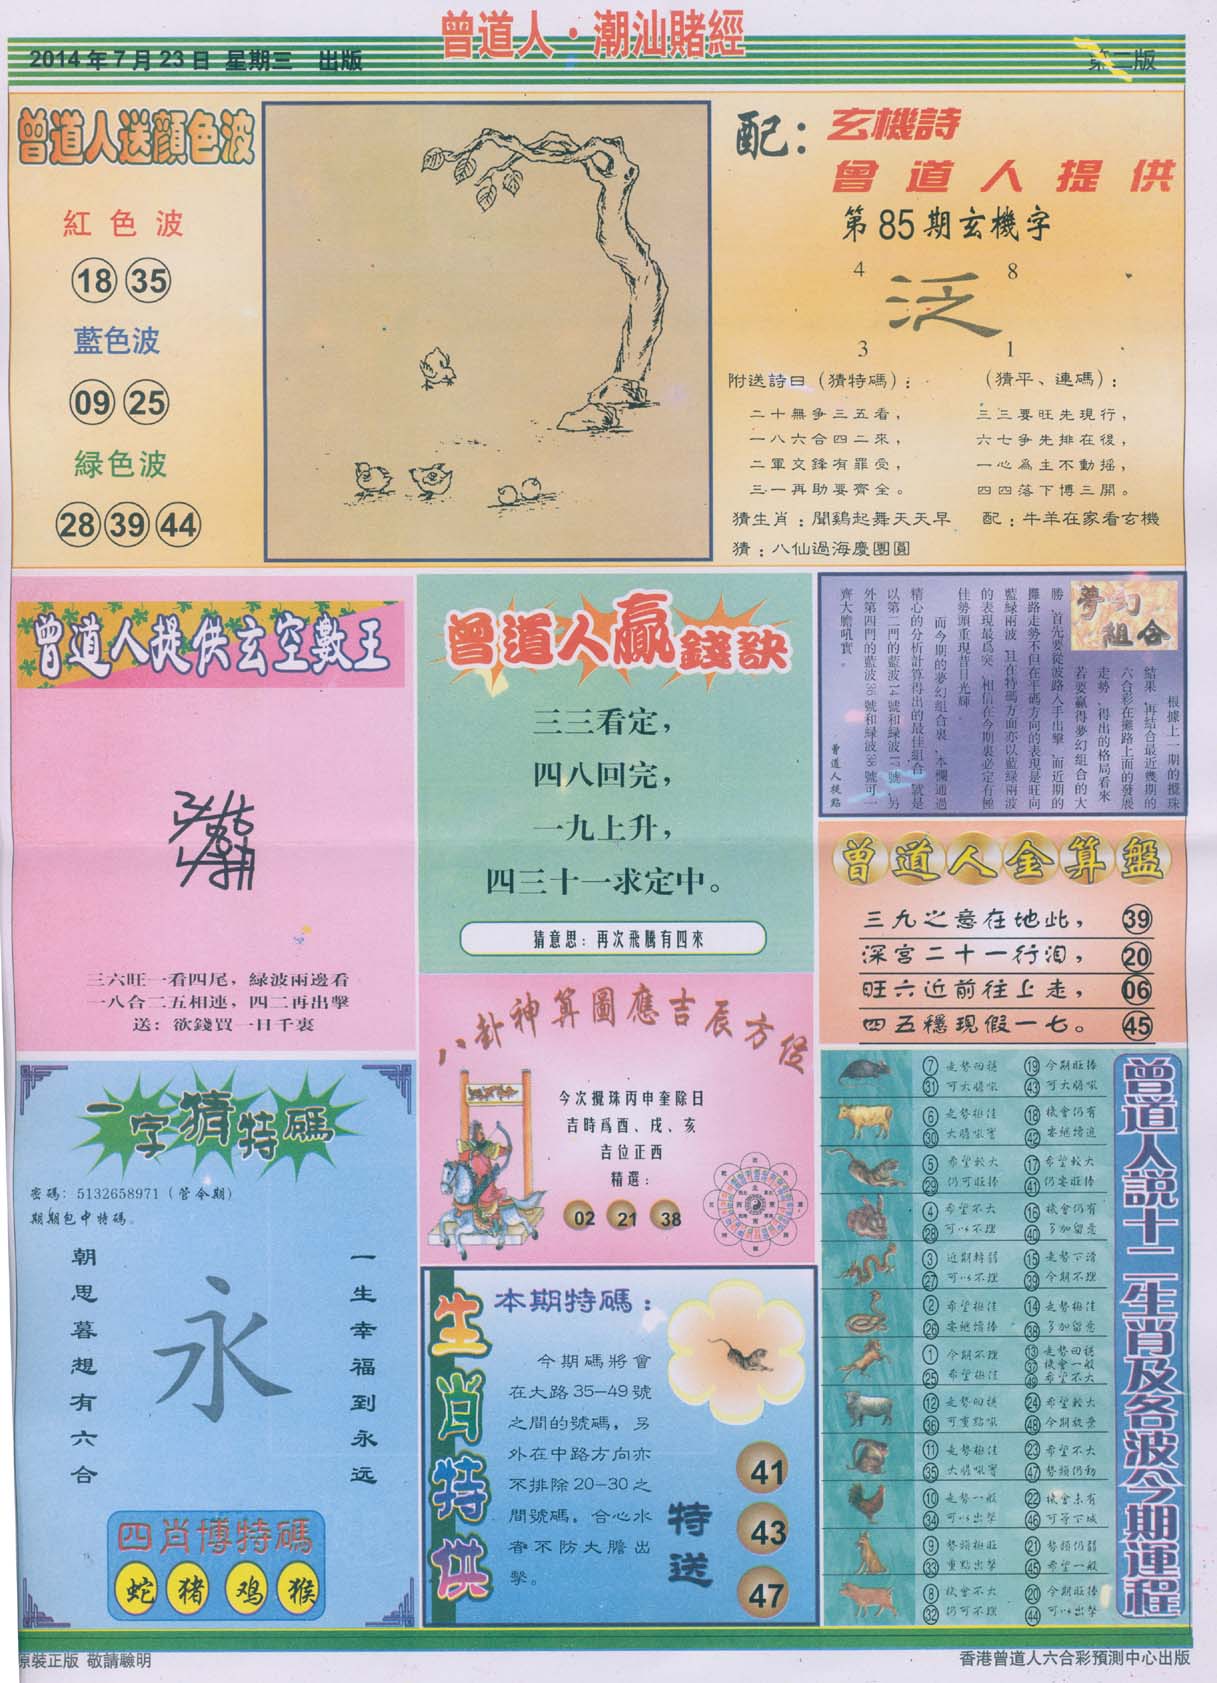 曾道人·潮汕賭經
2014年7月23日 星期三 出版
第二版
曾道人送顔色波
紅色波
18 35
藍色波
09 25
緑色波
28 39 44
配：
玄機詩
曾道人提供
第85期玄機字
4 8
泛
3 1
附送詩曰（猜特碼）：
二十無爭三五看，
一八六合四二來，
二軍交鋒有罪受，
三一再助要齊全。
（猜平、連碼）：
三三要旺先現行，
六七爭先排在後，
一心爲主不動摇，
四四落下博三開。
猜生肖：聞鷄起舞天天早
配：牛羊在家看玄機
猜：八仙過海慶團圓
曾道人提供玄空數王
三六旺一看四尾，緑波兩邊看
一八合二五相連，四二再出擊
送：欲錢買一日千裏
曾道人贏錢訣
三三看定，
四八回完，
一九上升，
四三十一求定中。
猜意思：再次飛騰有四來
夢幻組合
根據上一期的攪珠
結果，再結合最近幾期的
六合彩在攤路上面的發展
走勢，得出的格局看來
若要贏得夢幻組合的大
勝，首先要從波路入手出擊，而近期的
攤路走勢不但在平碼方向的表現是旺向
藍緑兩波，且在特碼方面亦以藍緑兩波
的表現最爲突，相信在今期裏必定有極
佳勢頭重現昔日光輝。
而今期的夢幻組合裏，本欄通過
精心的分析計算得出的最佳組合號是
以第二門的藍波14號和緑波17號，另
外第四門的藍波36號和緑波38號可一
齊大膽吼實。
曾道人提點
曾道人金算盤
三九之意在地此， 39
深宫二十一行泪， 20
旺六近前往上走， 06
四五穩現假一七。 45
八卦神算圖應吉辰方位
今次攪珠丙申奎除日
吉時爲酉、戌、亥
吉位正西
精選：
02 21 38
一字猜特碼
密碼：5132658971（管今期）
期期包中特碼。
朝思暮想有六合
永
一生幸福到永远
四肖博特碼
蛇 猪 鸡 猴
生肖特供
本期特碼：
今期碼將會
在大路35—49號
之間的號碼，另
外在中路方向亦
不排除20—30之
間號碼。合心水
者不防大膽出
擊。
特送
41
43
47
曾道人説十二生肖及各波今期運程
7 走勢回穩 19 今期旺捧
31 可大膽吼 43 可大膽吼
6 走勢極佳 18 機會仍有
30 大膽吼實 42 要繼續追
5 希望較大 17 希望較大
29 仍可旺捧 41 仍要旺捧
4 希望不大 16 機會仍有
28 可以不理 40 多加留意
3 近期轉弱 15 走勢下滑
27 可以不理 39 今期不理
2 希望極佳 14 走勢極佳
26 要繼續捧 38 多加留意
1 今期不理 13 走勢回穩
37 機會一般
25 希望極佳 49 希望不大
12 走勢回穩 24 希望較大
36 可重點吼 48 今期放棄
11 走勢極佳 23 希望不大
35 大膽吼實 47 勢頭仍動
10 走勢一般 22 機會未有
34 可以出擊 46 可等下城
9 勢頭極旺 21 勢頭仍弱
33 重點出擊 45 希望一般
8 機會不大 20 今期旺捧
32 仍可不理 44 可以出擊
原裝正版 敬請驗明
香港曾道人六合彩預測中心出版